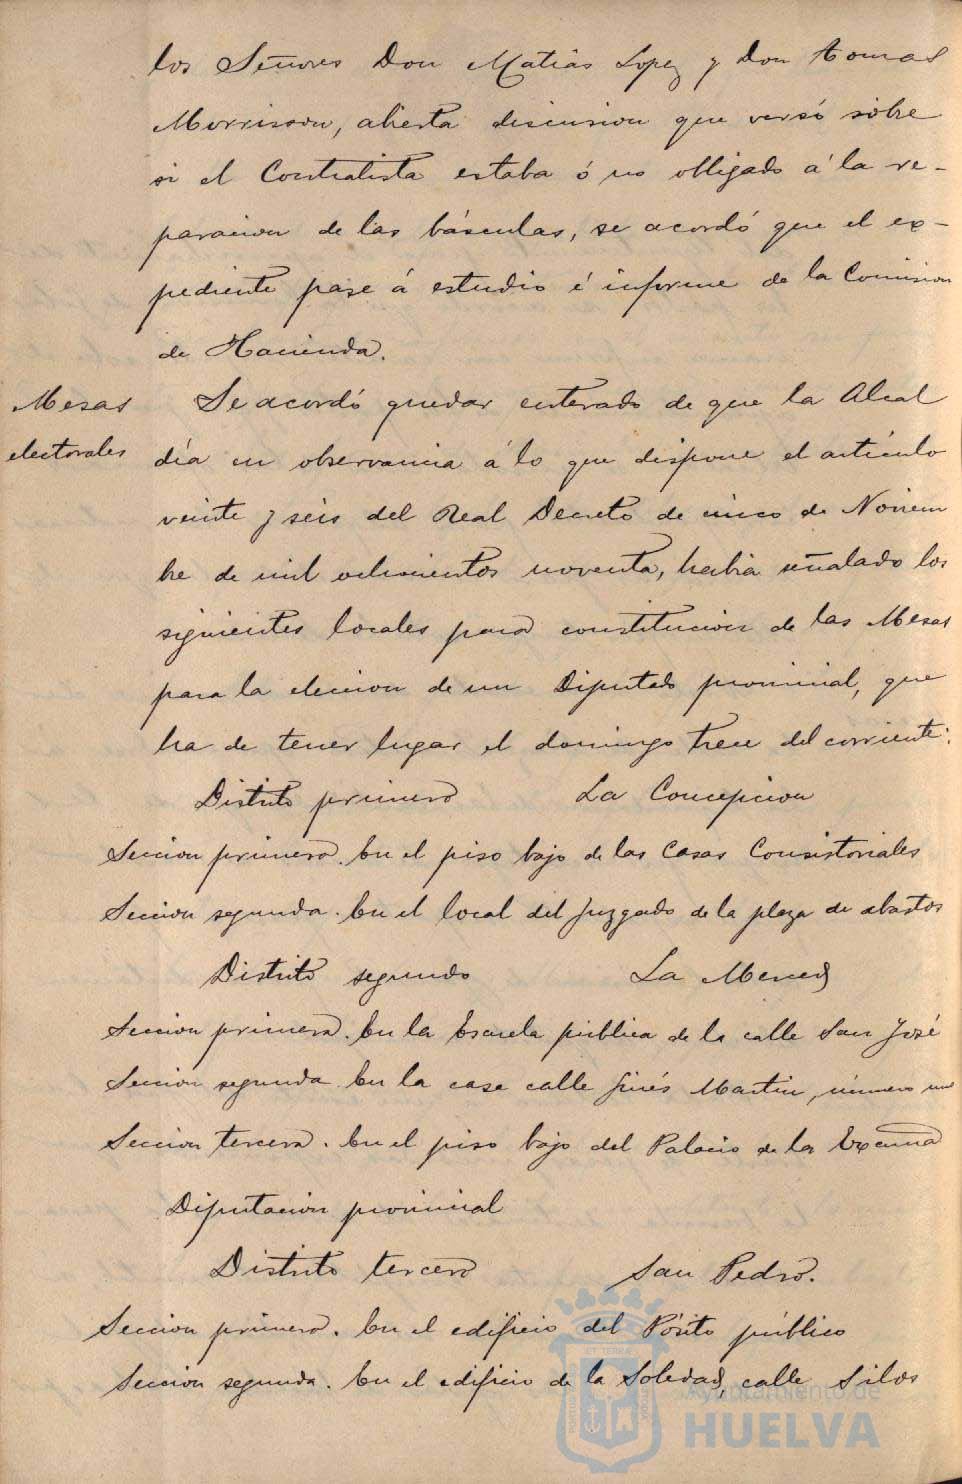 los Señores Don Matias Lopez y Don Tomas
Morrison, abierta discusion que versó sobre
si el Contratista estaba ó no obligado á la re-
paracion de las básculas, se acordó que el ex-
pediente pase á estudio é informe de la Comision
de Hacienda.
Mesas
electorales
Se acordó quedar enterado de que la Alcal
día en observancia á lo que dispone el artículo
veinte y seis del Real Decreto de cinco de Noviem
bre de mil ochocientos noventa, habia señalado los
siguientes locales para constitucion de las Mesas
para la eleccion de un Diputado provincial, que
ha de tener lugar el domingo trece del corriente.
Distrito primero La Concepcion
Seccion primera. En el piso bajo de las Casas Consistoriales
Seccion segunda. En el local del Juzgado de la plaza de abastos
Distrito segundo La Merced
Seccion primera. En la Escuela pública de la calle San José
Seccion segunda En la casa calle Ginés Martin, número uno
Seccion tercera. En el piso bajo del Palacio de la Excma
Diputacion provincial
Distrito tercero San Pedro.
Seccion primera. En el edificio del Pósito público
Seccion segunda. En el edificio de la Soledad, calle Silos
Ayuntamiento de
HUELVA